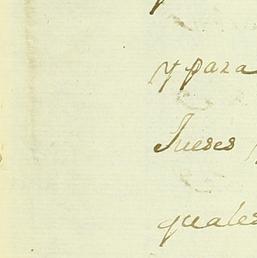 y para
Jueses
quales